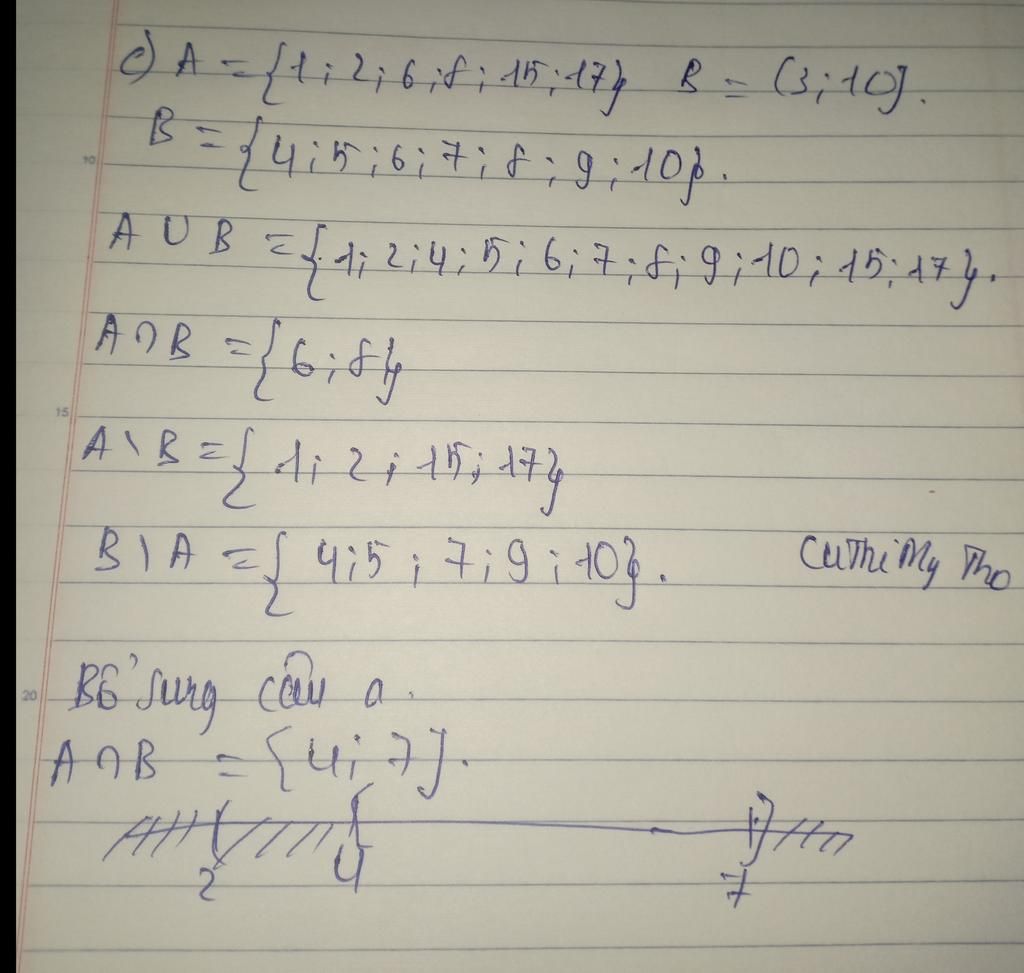 c) A = {1; 2; 6; 8; 15; 17} B = (3; 10].
B = {4; 5; 6; 7; 8; 9; 10}.
10
A ∪ B = {1; 2; 4; 5; 6; 7; 8; 9; 10; 15; 17}.
A ∩ B = {6; 8}
15
A \ B = {1; 2; 15; 17}
B \ A = {4; 5; 7; 9; 10}. CuThiMy Tho
20
Bổ sung câu a.
A ∩ B = {4; 7].
2 4 7